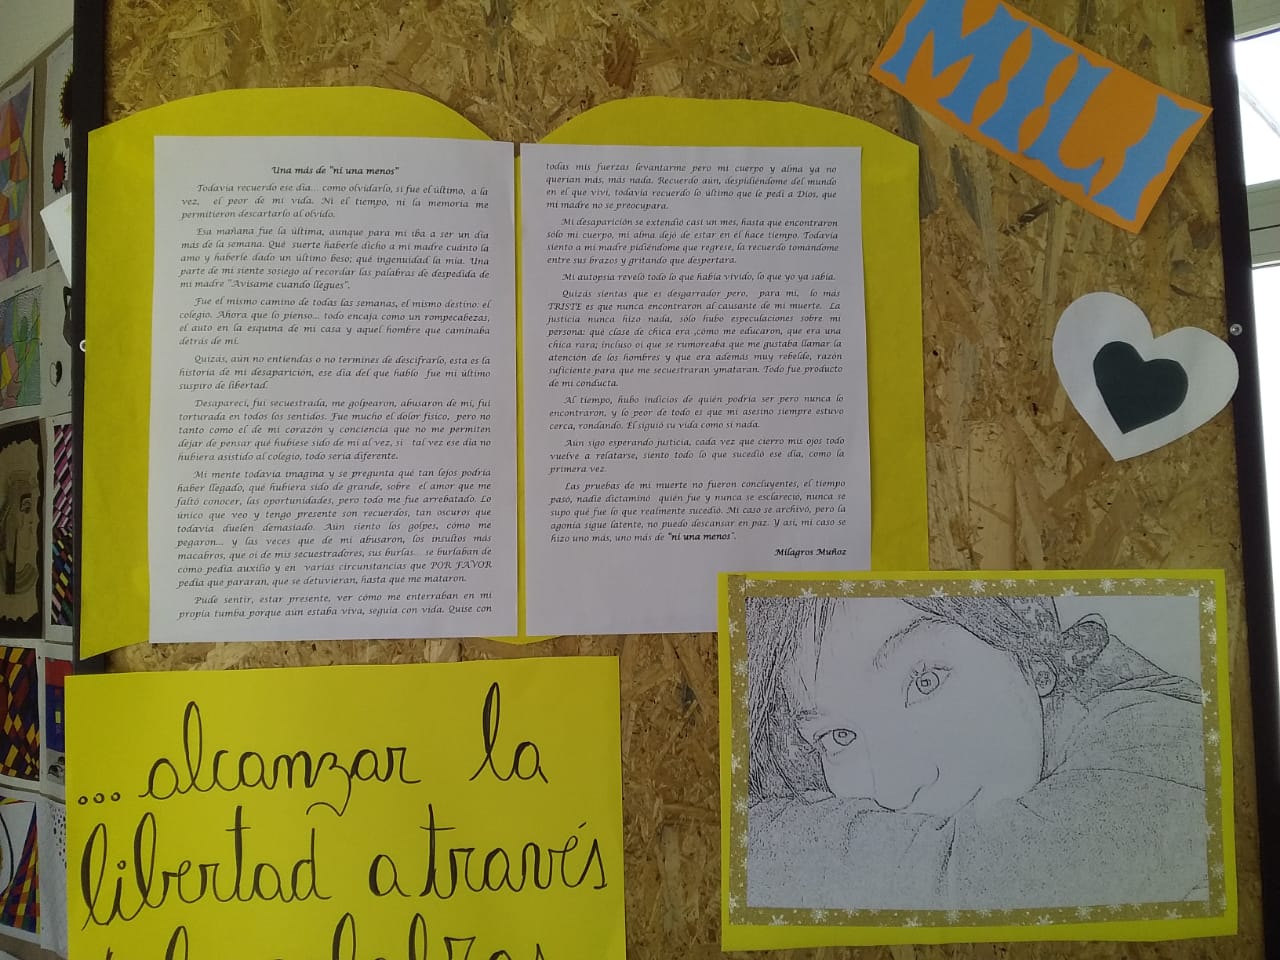 MILI
Una más de "ni una menos"
Todavía recuerdo ese día... como olvidarlo, si fue el último, a la
vez, el peor de mi vida. Ni el tiempo, ni la memoria me
permitieron descartarlo al olvido.
Esa mañana fue la última, aunque para mi iba a ser un día
más de la semana. Qué suerte haberle dicho a mi madre cuánto la
amo y haberle dado un último beso; qué ingenuidad la mía. Una
parte de mi siente sosiego al recordar las palabras de despedida de
mi madre "Avisame cuando llegues".
Fue el mismo camino de todas las semanas, el mismo destino: el
colegio. Ahora que lo pienso... todo encaja como un rompecabezas,
el auto en la esquina de mi casa y aquel hombre que caminaba
detrás de mi.
Quizás, aún no entiendas o no termines de descifrarlo, esta es la
historia de mi desaparición, ese día del que hablo fue mi último
suspiro de libertad.
Desaparecí, fui secuestrada, me golpearon, abusaron de mi, fui
torturada en todos los sentidos. Fue mucho el dolor físico, pero no
tanto como el de mi corazón y conciencia que no me permiten
dejar de pensar qué hubiese sido de mi al vez, si tal vez ese día no
hubiera asistido al colegio, todo sería diferente.
Mi mente todavía imagina y se pregunta qué tan lejos podría
haber llegado, qué hubiera sido de grande, sobre el amor que me
faltó conocer, las oportunidades, pero todo me fue arrebatado. Lo
único que veo y tengo presente son recuerdos, tan oscuros que
todavía duelen demasiado. Aún siento los golpes, cómo me
pegaron... y las veces que de mi abusaron, los insultos más
macabros, que oí de mis secuestradores, sus burlas... se burlaban de
cómo pedía auxilio y en varias circunstancias que POR FAVOR
pedía que pararan, que se detuvieran, hasta que me mataron.
Pude sentir, estar presente, ver cómo me enterraban en mi
propia tumba porque aún estaba viva, seguía con vida. Quise con
todas mis fuerzas levantarme pero mi cuerpo y alma ya no
querían más, más nada. Recuerdo aún, despidiéndome del mundo
en el que viví, todavía recuerdo lo último que le pedí a Dios, que
mi madre no se preocupara.
Mi desaparición se extendió casi un mes, hasta que encontraron
sólo mi cuerpo, mi alma dejó de estar en el hace tiempo. Todavía
siento a mi madre pidiéndome que regrese, la recuerdo tomándome
entre sus brazos y gritando que despertara.
Mi autopsia reveló todo lo que había vivido, lo que yo ya sabía.
Quizás sientas que es desgarrador pero, para mi, lo más
TRISTE es que nunca encontraron al causante de mi muerte. La
justicia nunca hizo nada, sólo hubo especulaciones sobre mi
persona: qué clase de chica era ,cómo me educaron, que era una
chica rara; incluso oí que se rumoreaba que me gustaba llamar la
atención de los hombres y que era además muy rebelde, razón
suficiente para que me secuestraran ymataran. Todo fue producto
de mi conducta.
Al tiempo, hubo indicios de quién podría ser pero nunca lo
encontraron, y lo peor de todo es que mi asesino siempre estuvo
cerca, rondando. El siguió su vida como si nada.
Aún sigo esperando justicia, cada vez que cierro mis ojos todo
vuelve a relatarse, siento todo lo que sucedió ese día, como la
primera vez.
Las pruebas de mi muerte no fueron concluyentes, el tiempo
pasó, nadie dictaminó quién fue y nunca se esclareció, nunca se
supo qué fue lo que realmente sucedió. Mi caso se archivó, pero la
agonía sigue latente, no puedo descansar en paz. Y así, mi caso se
hizo uno más, uno más de "ni una menos".
Milagros Muñoz
...alcanzar la
libertad a través